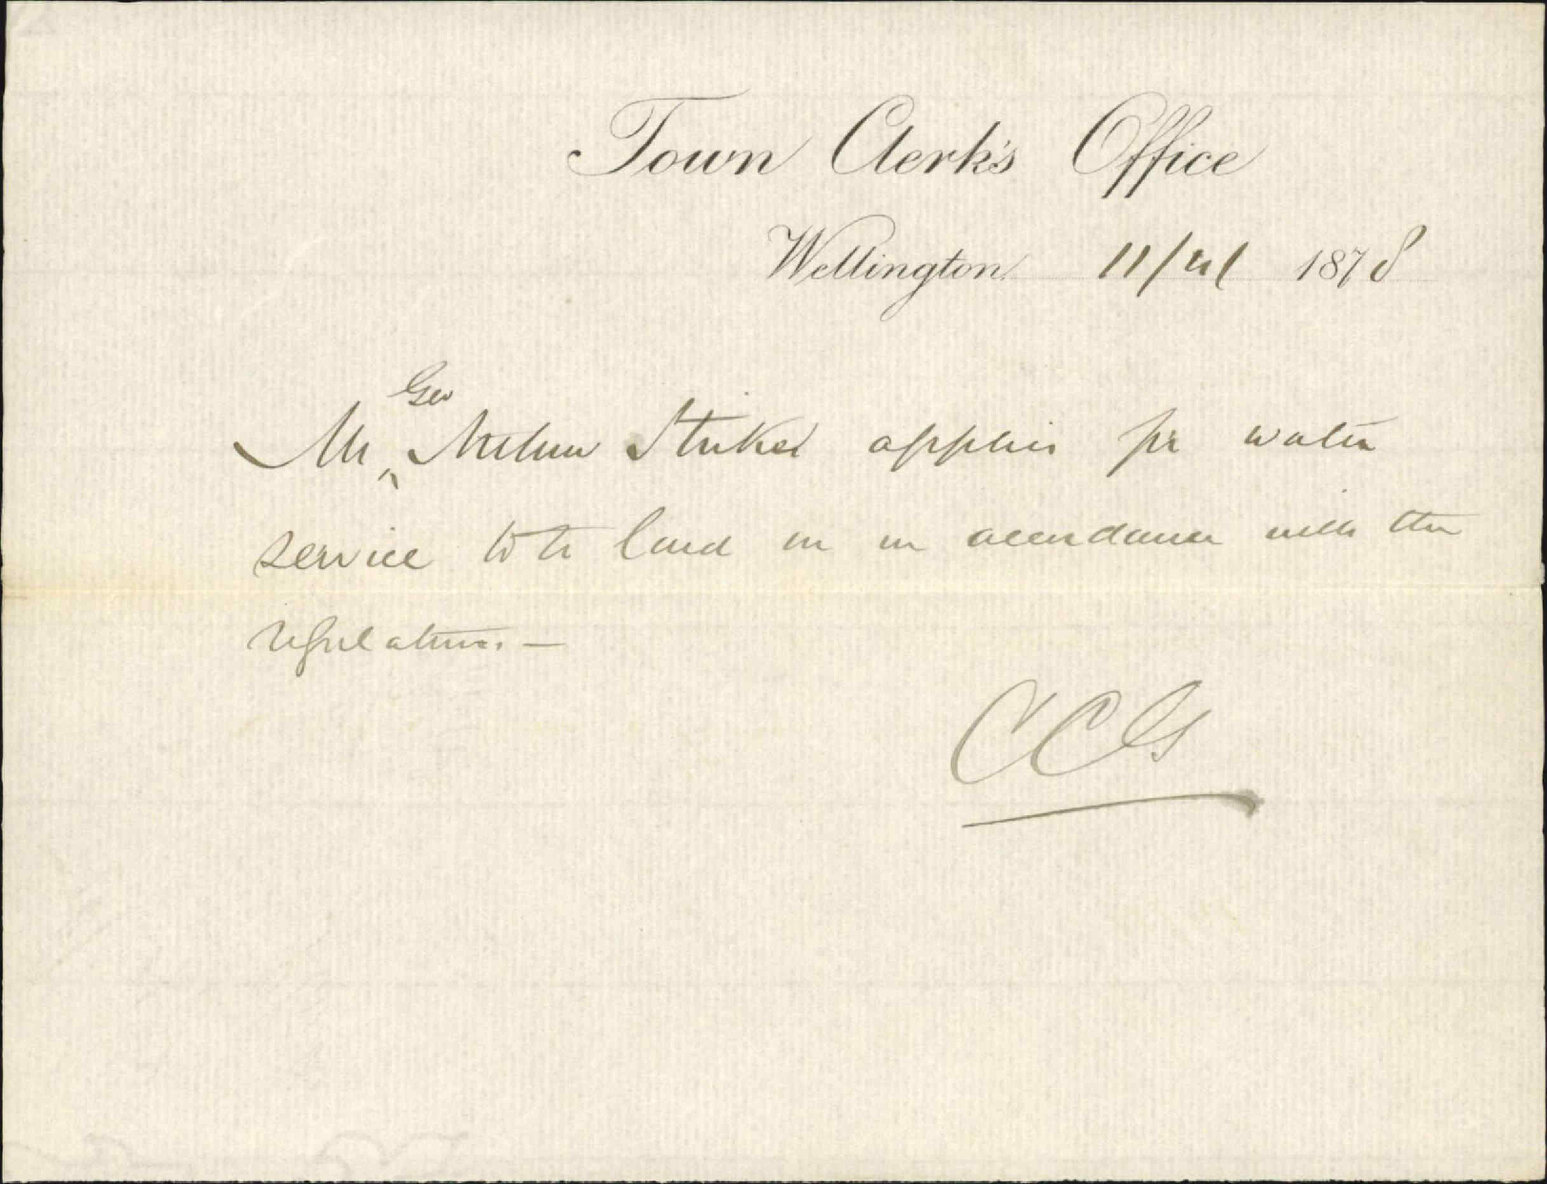 Town Clerk's Office
Wellington 11/ 1878
Geo
Mr Nelson Street applies for water
service to be laid on in accordance with the
regulations —
CCG